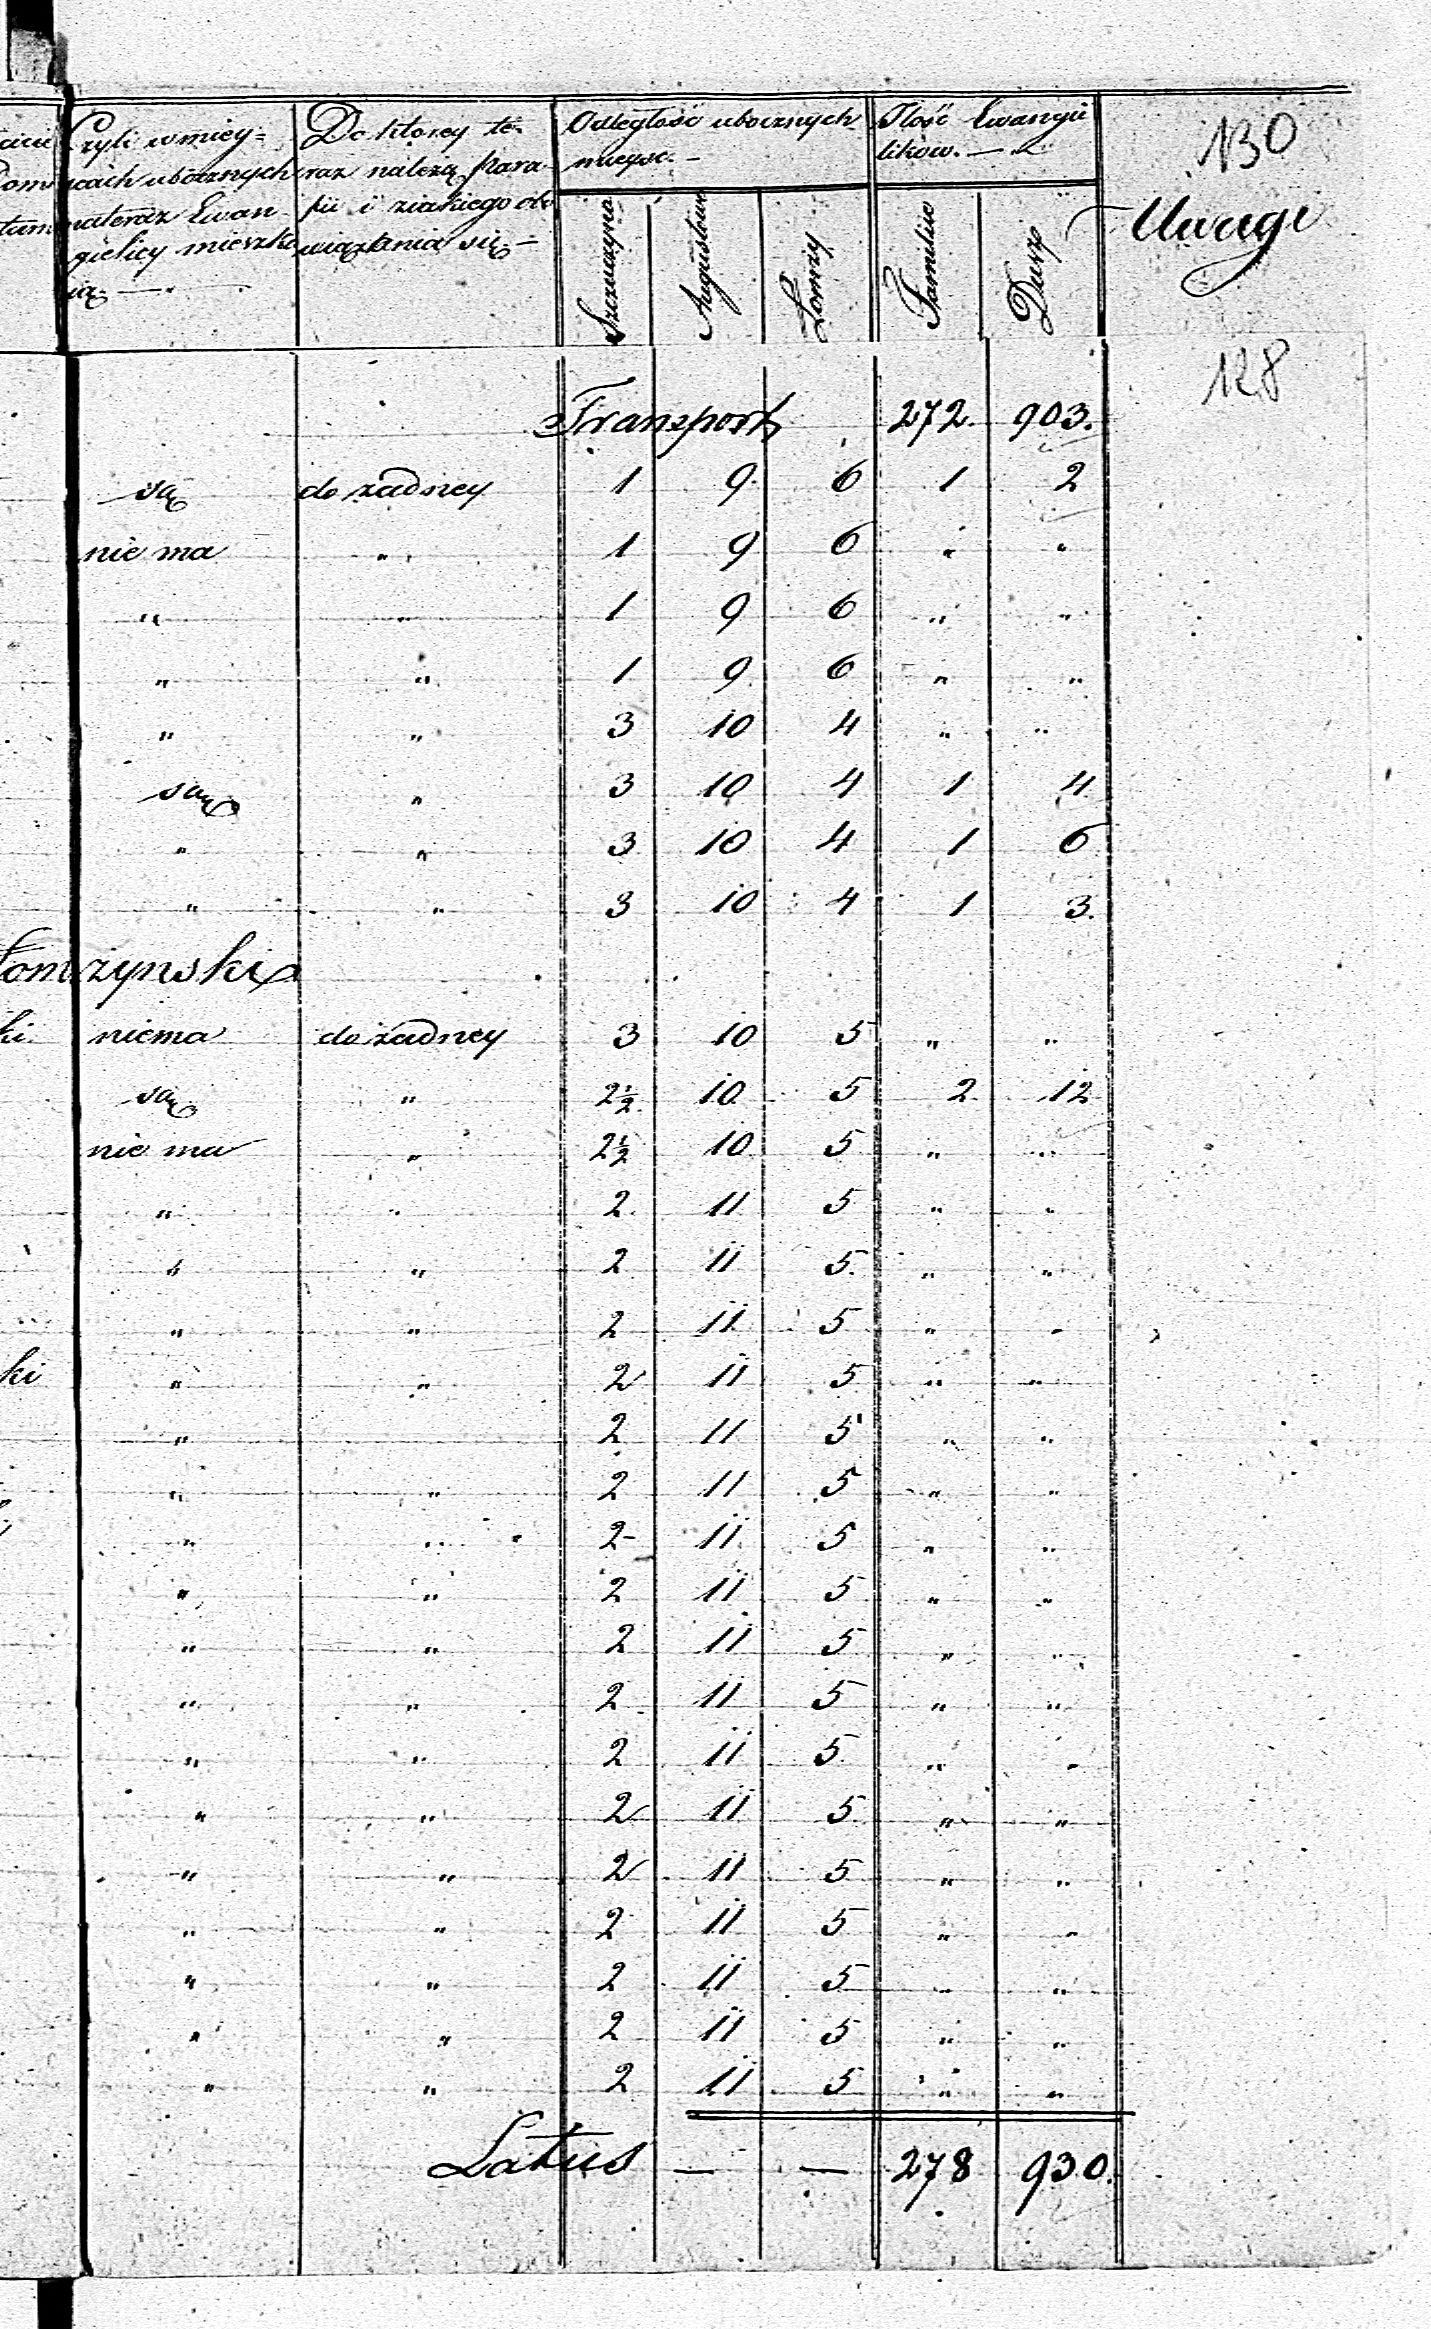 130
Czyli w miey=
scach ubocznych
na teraz Ewan
gielicy mieszka
ią. —
Do którey te-
raz należą Para-
fii i z iakiego obo
wiązkania się. —
Odległość ubocznych
mieysc. —
Szczuczyna
Augustowa
Łomży
Ilość Ewangie
likow. —
Familiie
Dusz
Uwagi
128
Transport 272. 903.
są do żadney 1 9 6 1 2
nie ma " 1 9 6 " "
" " 1 9 6 " "
" " 1 9 6 " "
" " 3 10 4 " "
są " 3 10 4 1 4
" " 3 10 4 1 6
" " 3 10 4 1 3.
Łomżynski
ki. niema do żadney 3 10 5 " "
są " 2½ 10 5 2 12
nie ma " 2½ 10 5 " "
" " 2 11 5 " "
" " 2 11 5. " "
" " 2 11 5 " "
ki " " 2 11 5 " "
" 2 11 5 " "
" " 2 11 5 " "
" " 2- 11 5 " "
" " 2 11 5 " "
" " 2 11 5 " "
" " 2 11 5 " "
" " 2 11 5 " "
" " 2 11 5 " "
" " 2 11 5 " "
" " 2 11 5 " "
" " 2 11 5 " "
" " 2 11 5 " "
" " 2 11 5 " "
Latus — — 278 930.